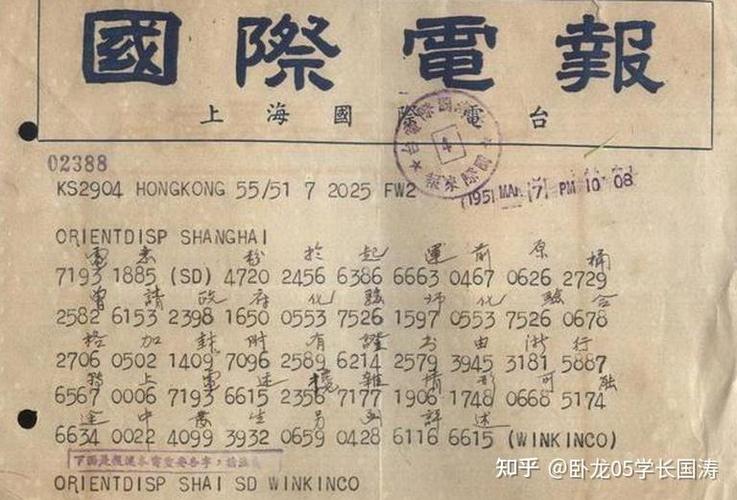 國際電報
上海國際電台
02388
KS2904 HONGKONG 55/51 7 2025 FW2
1951 MAR 7 PM 10 08
4
ORIENTDISP SHANGHAI
電 於 起 運 前 原 桶
7193 1885 (SD) 4720 2456 6386 6663 0467 0626 2729
曾 請 政 府 化 驗 師 化 驗 合
2582 6153 2398 1650 0553 7526 1597 0553 7526 0678
格 加 封 時 有 證 書 由 浙 行
2706 0502 1409 7096 2589 6214 2579 3945 3181 5887
轉 上 電 述 攙 雜 情 形 可 融
6567 0006 7193 6615 2356 7177 1906 1748 0668 5174
途 中 發 生 另 函 詳 述
6634 0022 4099 3932 0659 0428 6116 6615 (WINKINCO)
ORIENTDISP SHAI SD WINKINCO
知乎 @卧龙05学长国涛